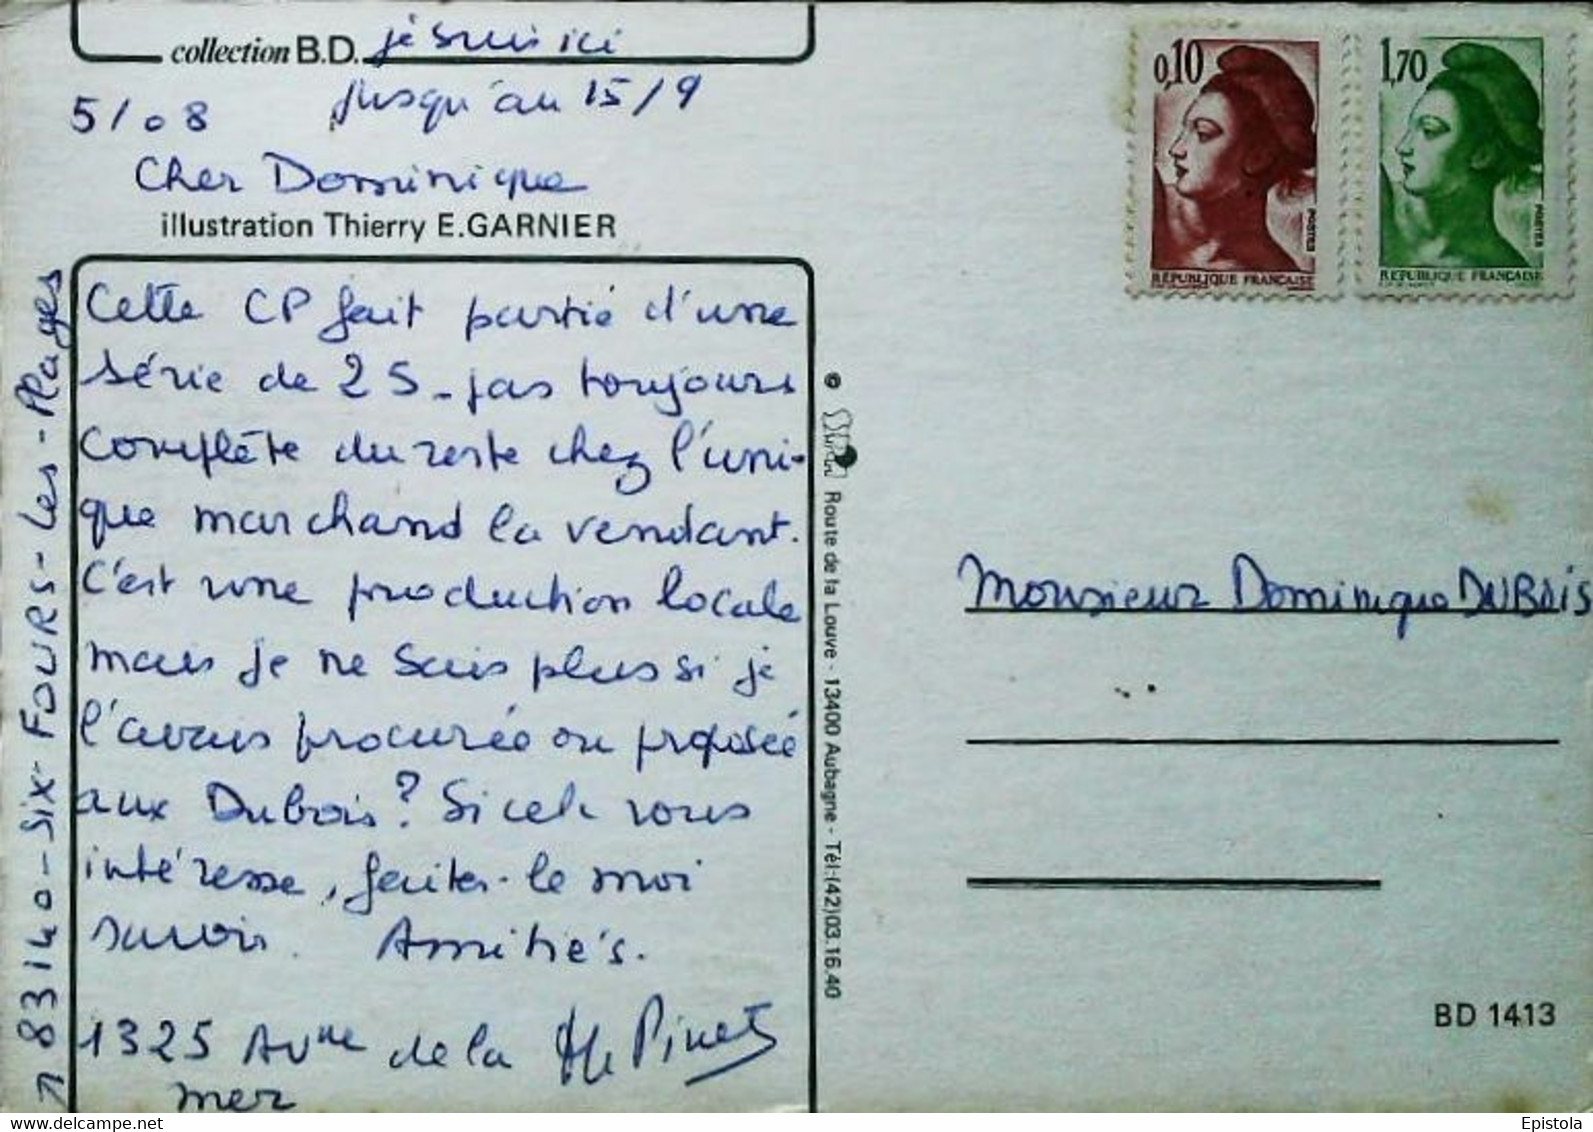 collection B.D. je suis ici
jusqu'au 15/9
5/08
Cher Dominique
illustration Thierry E.GARNIER
Cette CP fait partie d'une
série de 25 - pas toujours
complète du reste chez l'uni-
que marchand la vendant.
C'est une production locale
mais je ne sais plus si je
l'avais procurée ou proposée
aux Dubois? Si cela vous
intéresse, faites-le moi
savoir. Amitiés.
Pinet
1325 Avnue de la
mer
→ 83140 - SIX-FOURS-Les-Plages
0,10
POSTES
RÉPUBLIQUE FRANÇAISE
1,70
POSTES
REPUBLIQUE FRANÇAISE
© Route de la Louve - 13400 Aubagne - Tél:(42)03.16.40
Monsieur Dominique DUBOIS
BD 1413
Epistola